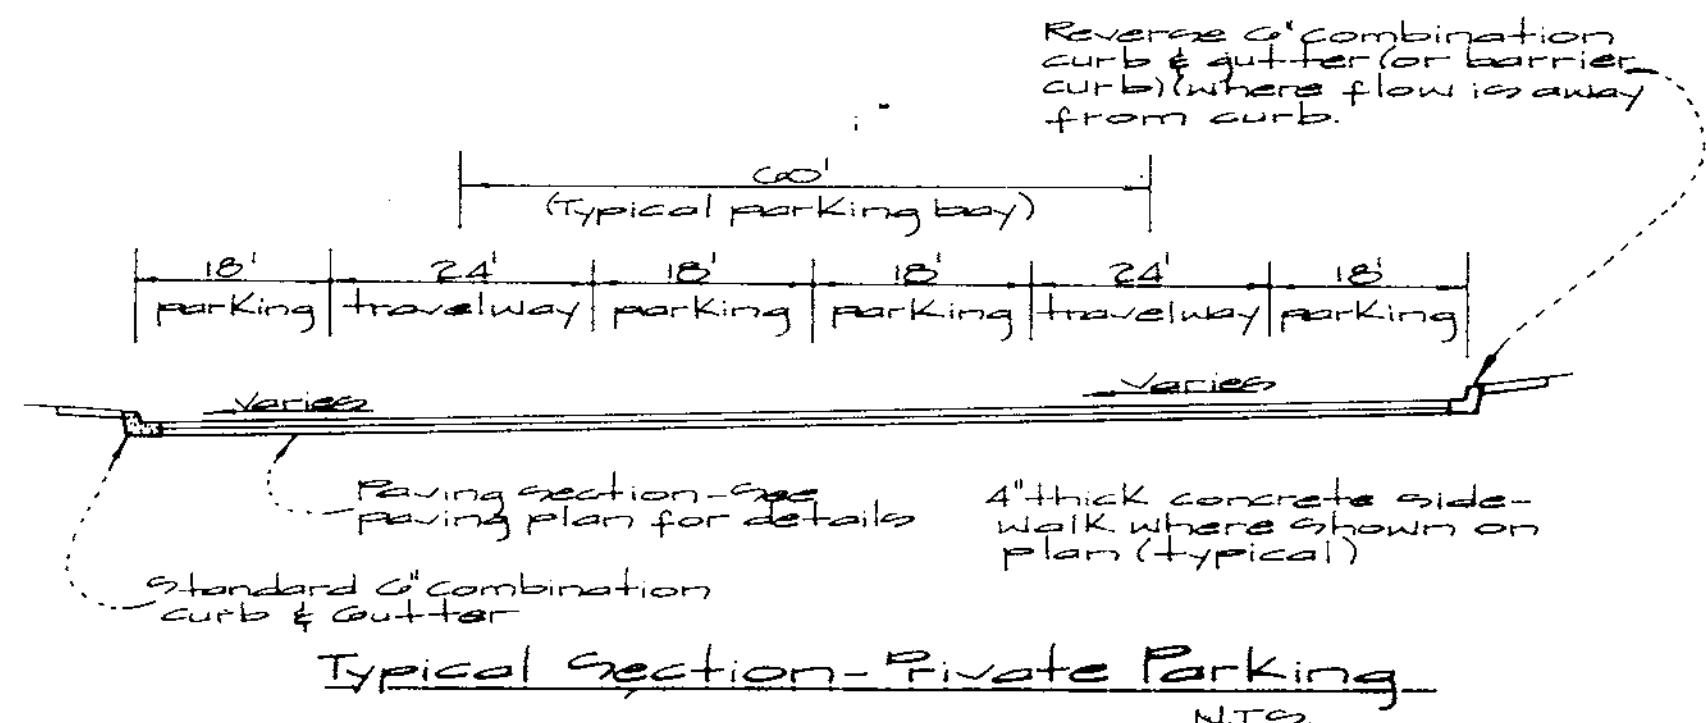 Reverse 6" combination
curb & gutter (or barrier
curb) (where flow is away
from curb.
60'
(Typical parking bay)
18' 24' 18' 18' 24' 18'
parking travelway parking parking travelway parking
Varies Varies
Paving section - See
paving plan for details
4" thick concrete side-
walk where shown on
plan (typical)
Standard 6" combination
curb & Gutter
Typical Section - Private Parking
N.T.S.